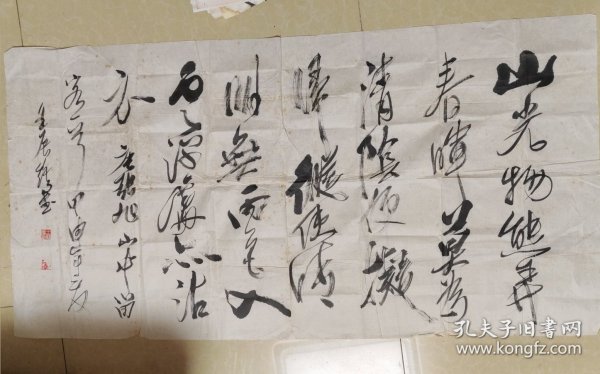 山光物態弄
春暉莫為
清陰便擬
歸縱使清
明無雨色入
雲深處亦沾
衣 唐張旭山中留
客一首 甲申年
孔夫子旧书网
www.kongfz.com